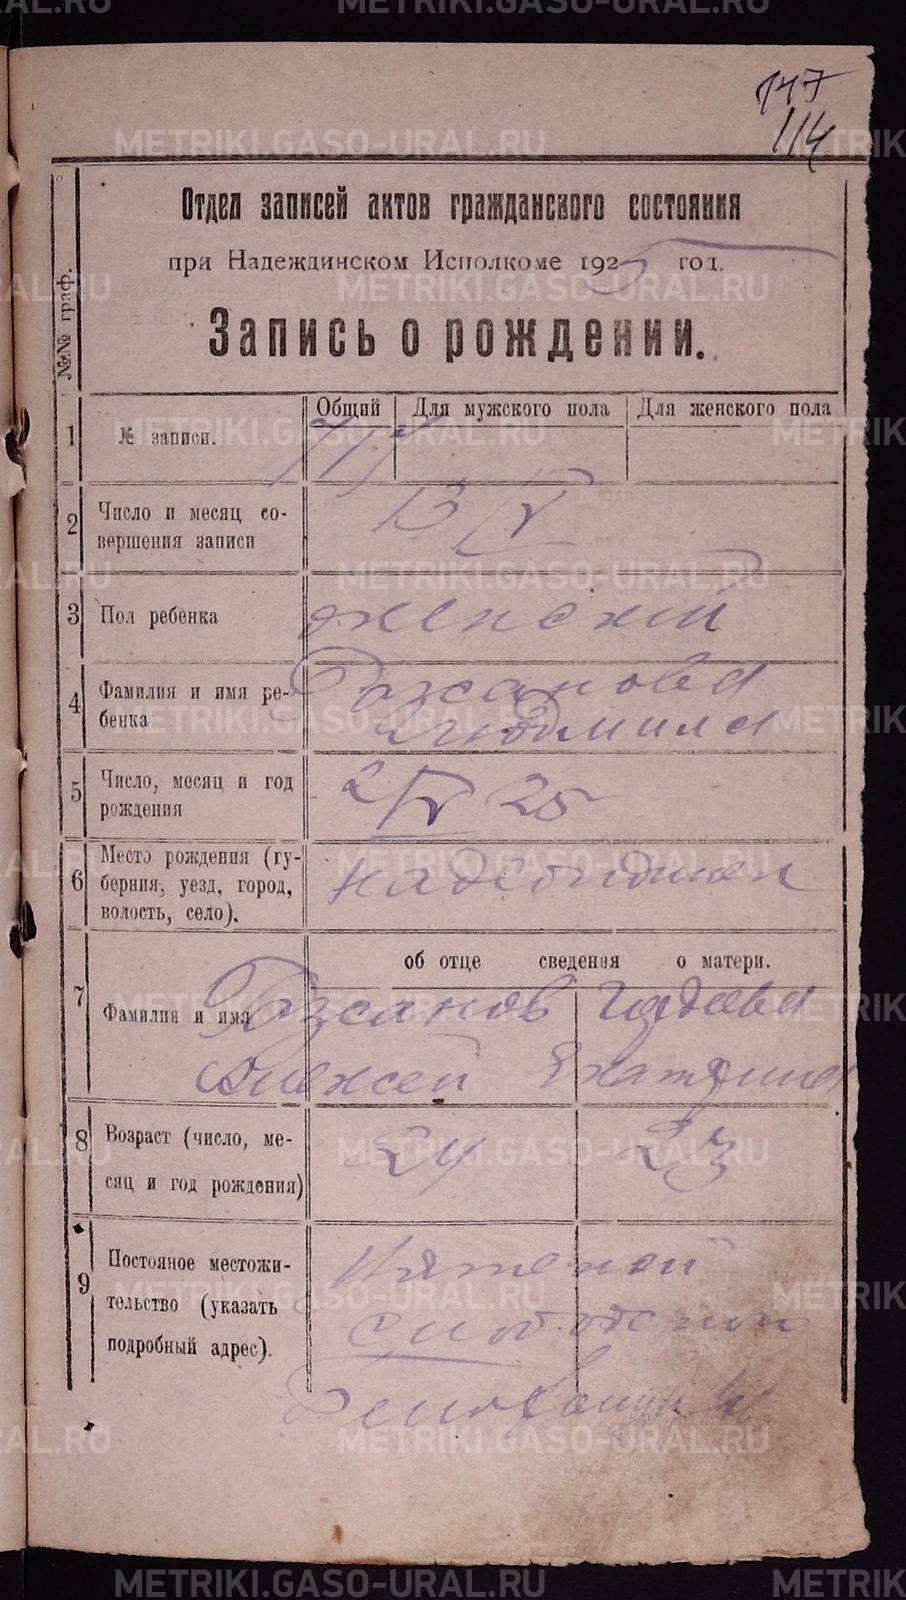 METRIKI.GASO-URAL.RU
147
114
Отдел записей актов гражданского состояния
при Надеждинском Исполкоме 1925 год.
Запись о рождении.
№№ граф.
Общий Для мужского пола Для женского пола
1 № записи. 717
2 Число и месяц со-
вершения записи 13/V
3 Пол ребенка женский
4 Фамилия и имя ре-
бенка
Людмила
5 Число, месяц и год
рождения 2/V 25
6 Место рождения (гу-
берния, уезд, город,
волость, село).
7 об отце сведения о матери.
Фамилия и имя
Алексей Екатерина
8 Возраст (число, ме-
сяц и год рождения) 24 23
9 Постояное местожи-
тельство (указать
подробный адрес).